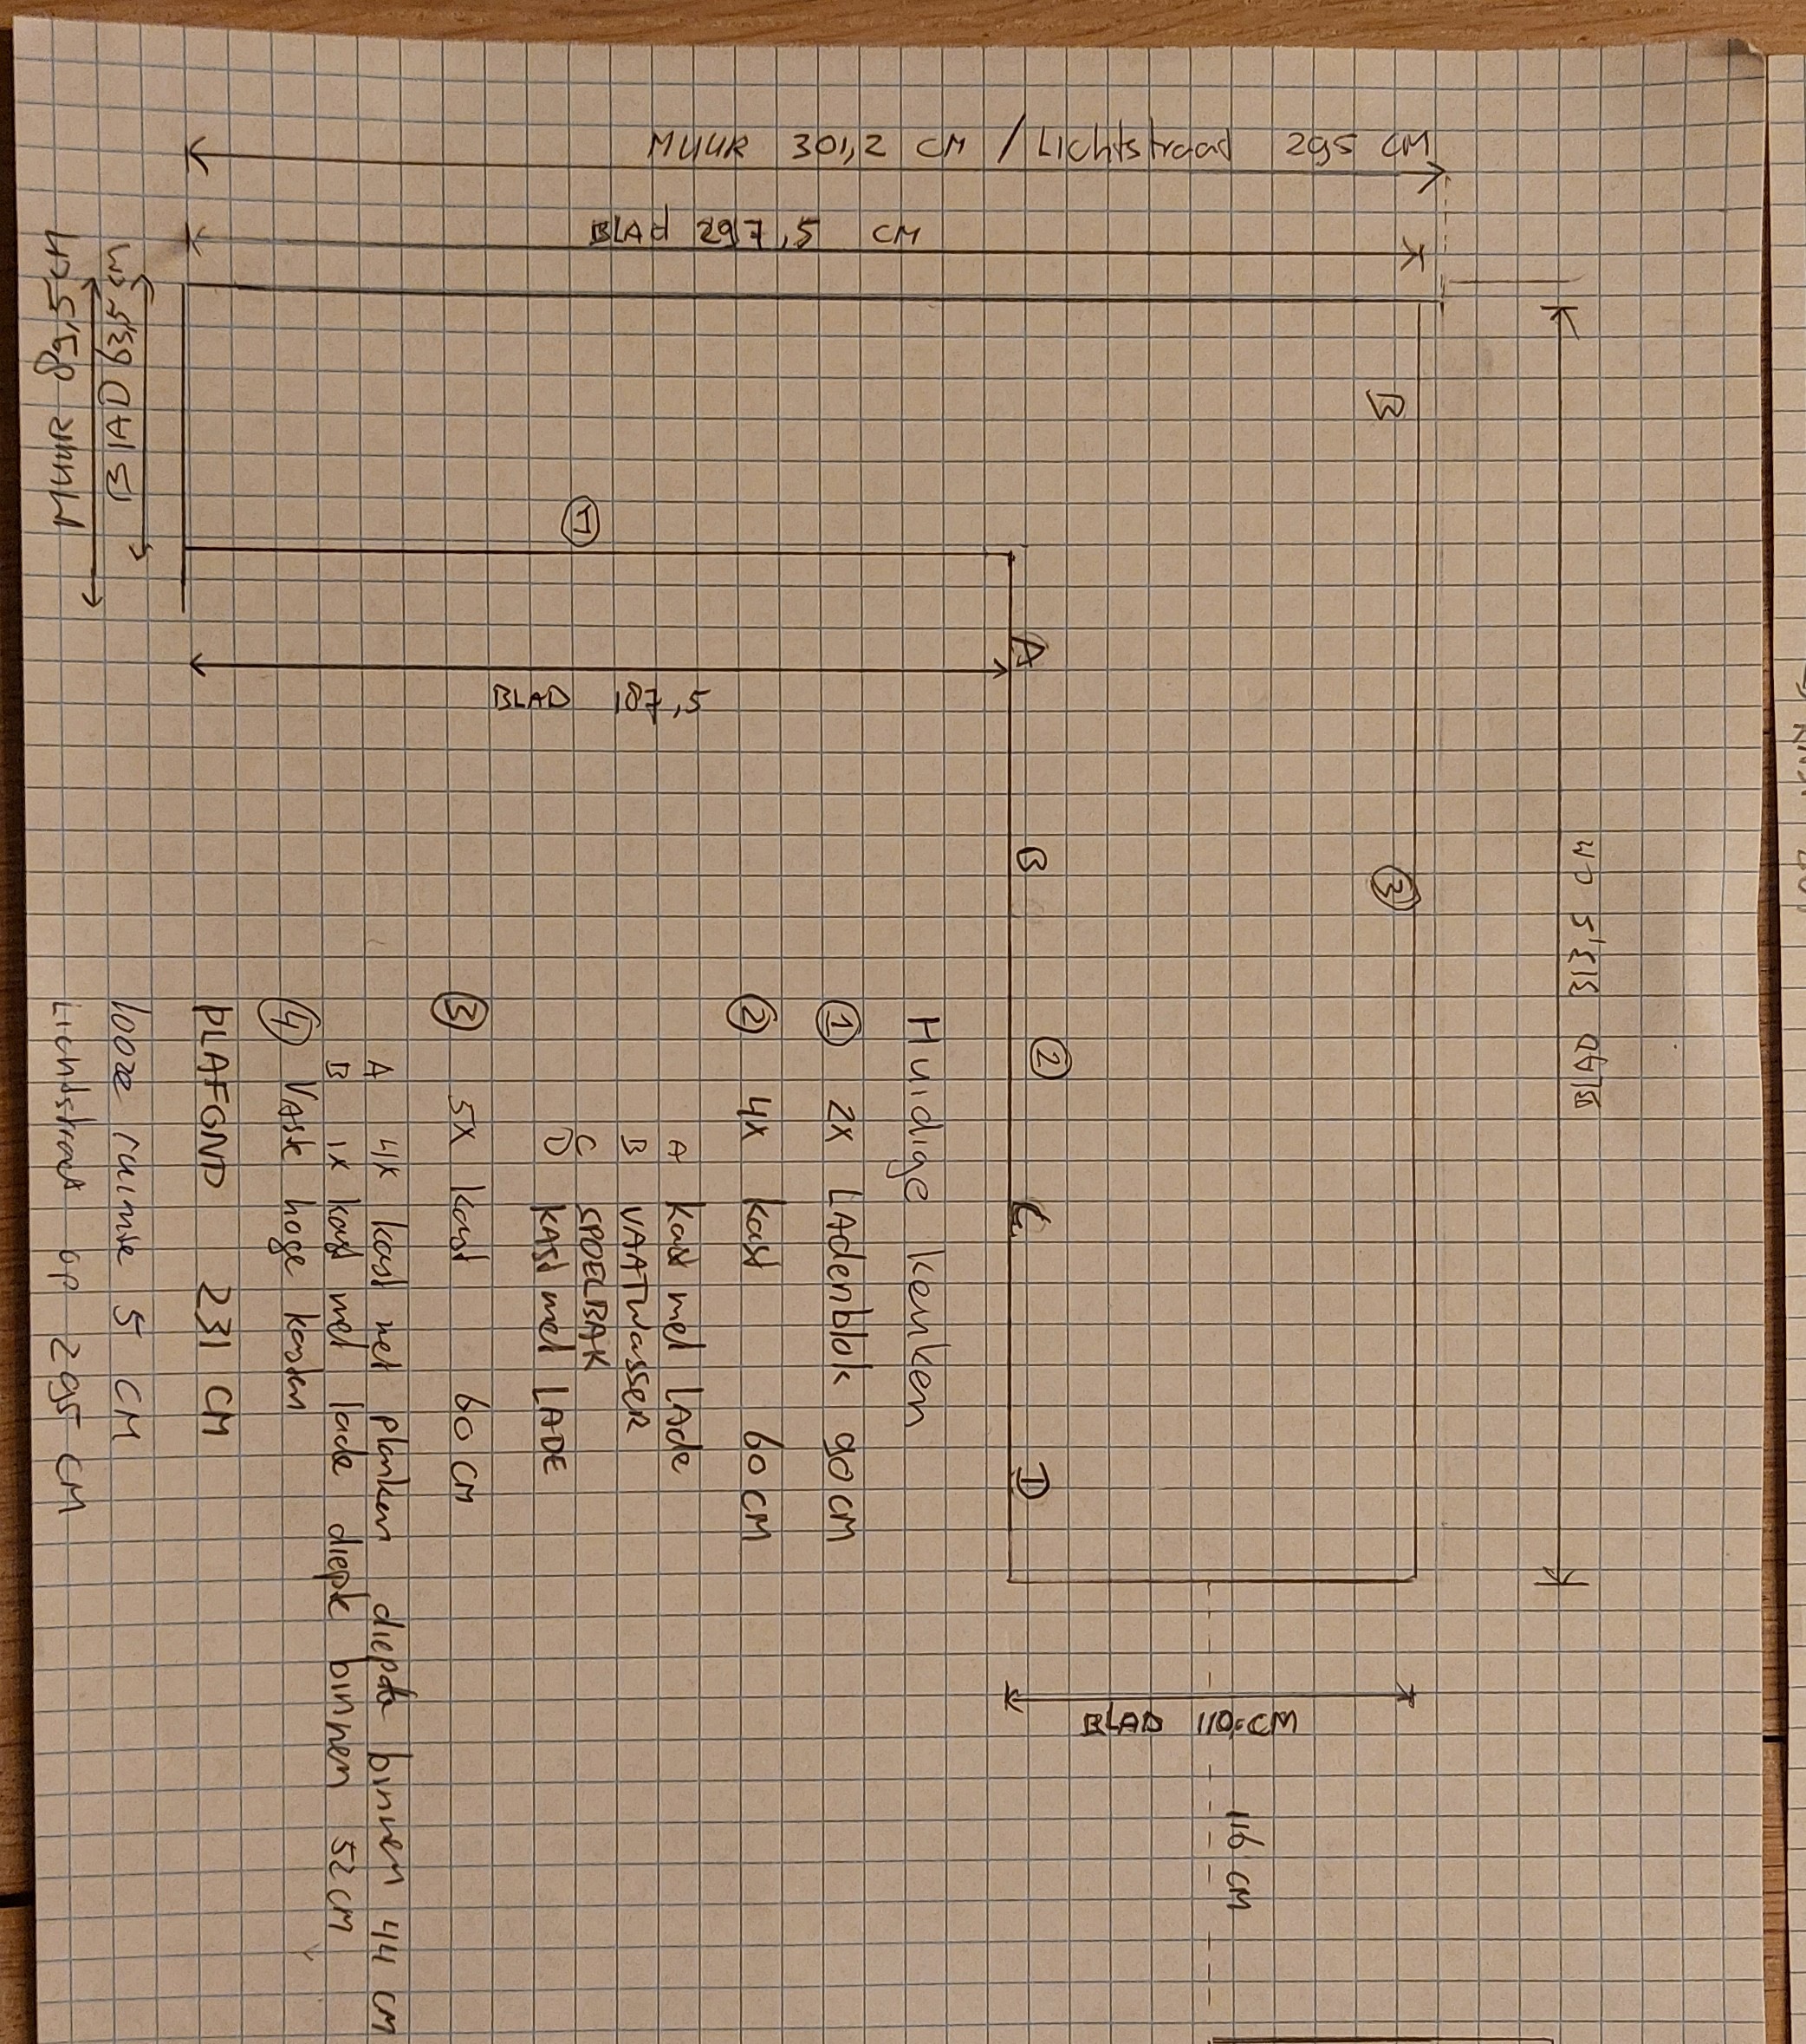 MUUR 301,2 CM / Lichtstraad 295 CM
BLAd 297,5 CM
MUUR 89,5 CM
BLAD 63,5 cm
B
1
A
BLAD 187,5
B
3
BLAD 313,5 CM
2
C
D
BLAD 110, CM
116 CM
Huidige keuken
1 2x LAdenblok 90 CM
2 4x kast 60 CM
A kast met lade
B VAATWasseR
C SPOELBAK
D KAST met LADE
3 5x kast 60 CM
A 4x kast met planken diepte binnen 44 CM
B 1x kast met lade diepte binnen 52 CM
4 VAste hoge kasten
PLAFOND 231 CM
looze ruimte 5 CM
Lichtstraat op 295 CM